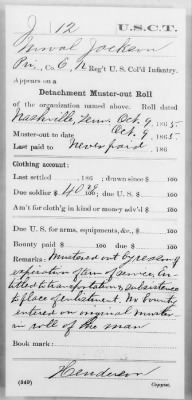 J 12 U.S.C.T.
Jackson
Pvt., Co. G, 12 Reg't U. S. Col'd Infantry.
Appears on a
Detachment Muster-out Roll
of the organization named above. Roll dated
Nashville, Tenn. Oct. 9, 1865.
Muster-out to date Oct. 9, 1865.
Last paid to Never paid 186
Clothing account:
Last settled 186 ; drawn since $ 100
Due soldier $ 100; due U. S. $ 100
Am't for cloth'g in kind or money adv'd $ 100
Due U. S. for arms, equipments, &c., $ 100
Bounty paid $ 100; due $ 100
Remarks: Mustered out by reason of
expiration of term of service. En-
titled to transportation & subsistence
to place of enlistment. No bounty
entered on original muster
in roll of the man
Book mark:
Henderson
(349) Copyist.